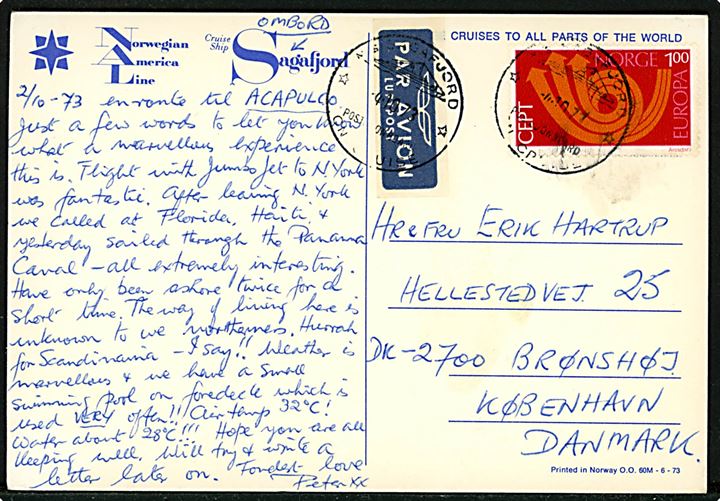 OMBORD
Norwegian America Line
Cruise Ship Sagafjord
CRUISES TO ALL PARTS OF THE WORLD
2/10-73 enroute til ACAPULCO
Just a few words to let you know
what a marvellous experience
this is. Flight with Jumbo Jet to N.York
was fantastic. After leaving N.York
we called at Florida, Haiti, &
yesterday sailed through the Panama
Canal – all extremely interesting.
Have only been ashore twice for a
short time. The way of living here is
unknown to we northerners. Hurrah
for Scandinavia – I say!! Weather is
marvellous & we have a small
swimming pool on foredeck which is
used VERY often!! Air temp 32°C!
Water about 28°C!!! Hope you are all
keeping well. Will try & write a
letter later on. Fondest love
Peter xx
PAR AVION
LUFTPOST
NORGE 1,00
EUROPA
CEPT
HR & FRU ERIK HARTRUP
HELLESTEDVEJ 25
DK-2700 BRØNSHØJ
KØBENHAVN
DANMARK.
Printed in Norway O.O. 60M - 6 - 73